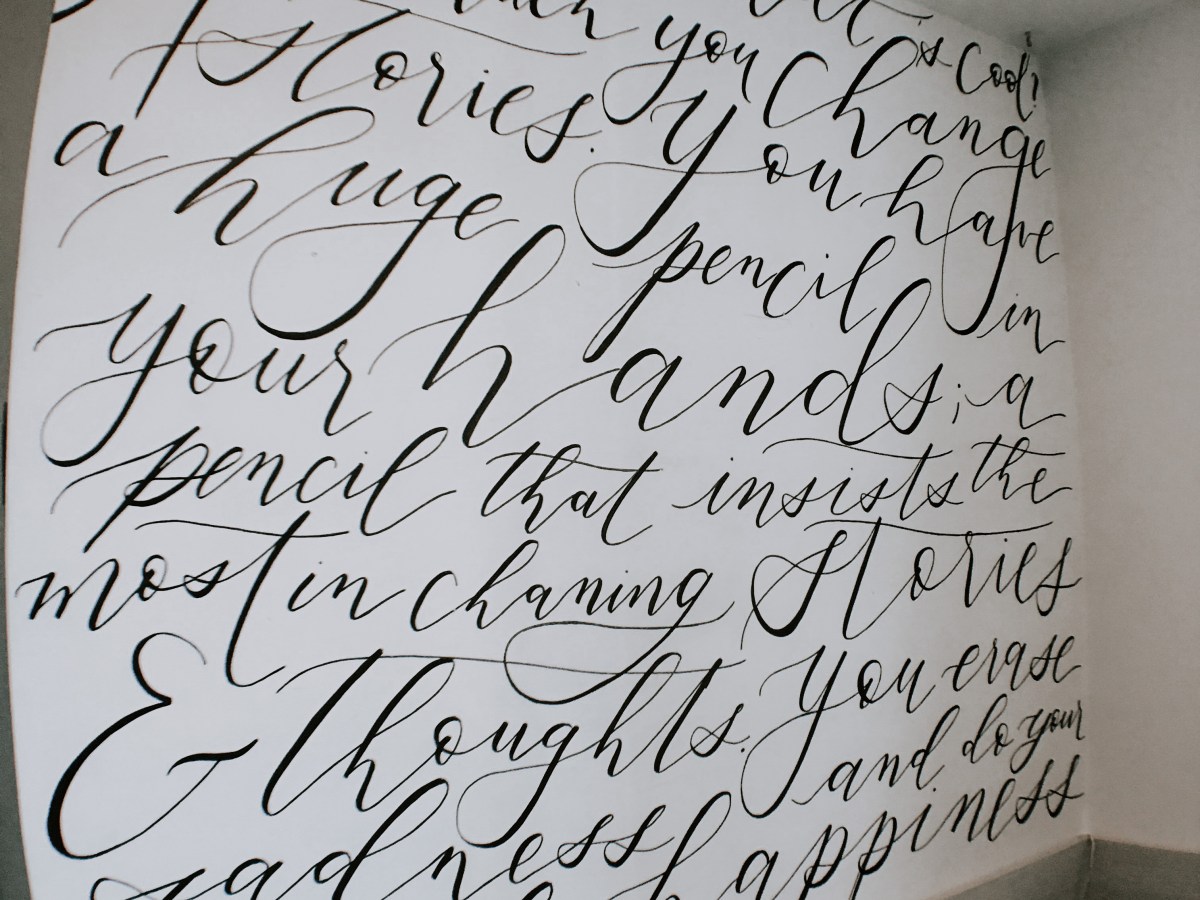 is cool!
you change
stories. You have
a huge pencil in
your hands; a
pencil that insists the
most in chaning stories
& thoughts. you erase
and do your
sadness happiness